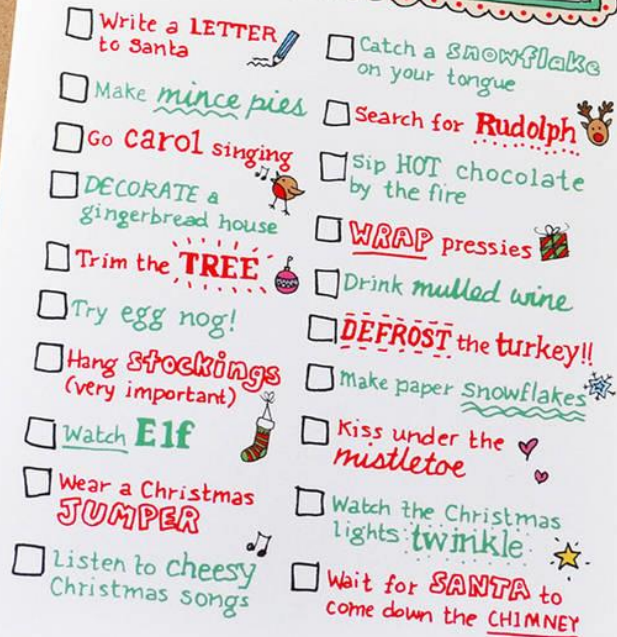 Write a LETTER
to Santa
Make mince pies
Go carol singing
DECORATE a
gingerbread house
Trim the TREE
Try egg nog!
Hang Stockings
(very important)
Watch Elf
Wear a Christmas
JUMPER
Listen to cheesy
Christmas songs
Catch a snowflake
on your tongue
Search for Rudolph
Sip HOT chocolate
by the fire
WRAP pressies
Drink mulled wine
DEFROST the turkey!!
Make paper snowflakes
Kiss under the
mistletoe
Watch the Christmas
lights twinkle
Wait for SANTA to
come down the CHIMNEY